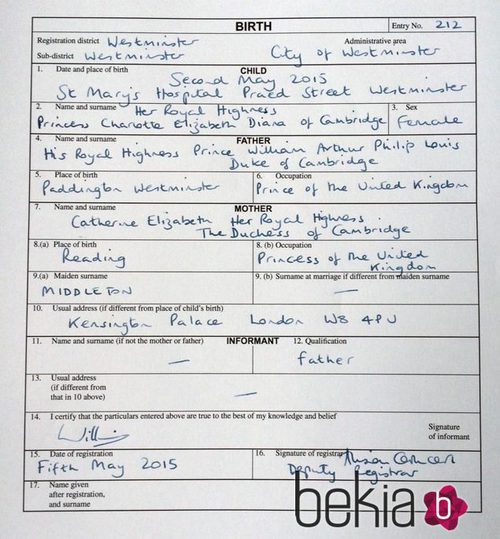 BIRTH Entry No. 212
Registration district Westminster Administrative area
Sub-district Westminster City of Westminster
1. Date and place of birth CHILD
Second May 2015
St Mary's Hospital Praed Street Westminster
2. Name and surname Her Royal Highness 3. Sex
Princess Charlotte Elizabeth Diana of Cambridge Female
4. Name and surname FATHER
His Royal Highness Prince William Arthur Philip Louis
Duke of Cambridge
5. Place of birth 6. Occupation
Paddington Westminster Prince of the United Kingdom
7. Name and surname MOTHER
Catherine Elizabeth Her Royal Highness
The Duchess of Cambridge
8.(a) Place of birth 8. (b) Occupation
Reading Princess of the United
Kingdom
9.(a) Maiden surname 9. (b) Surname at marriage if different from maiden surname
MIDDLETON —
10. Usual address (if different from place of child's birth)
Kensington Palace London W8 4PU
11. Name and surname (if not the mother or father) INFORMANT 12. Qualification
— father
13. Usual address
(if different from
that in 10 above) —
14. I certify that the particulars entered above are true to the best of my knowledge and belief
Signature
of informant
15. Date of registration 16. Signature of registrar
Fifth May 2015 Deputy Registrar
17. Name given
after registration,
and surname
bekia b